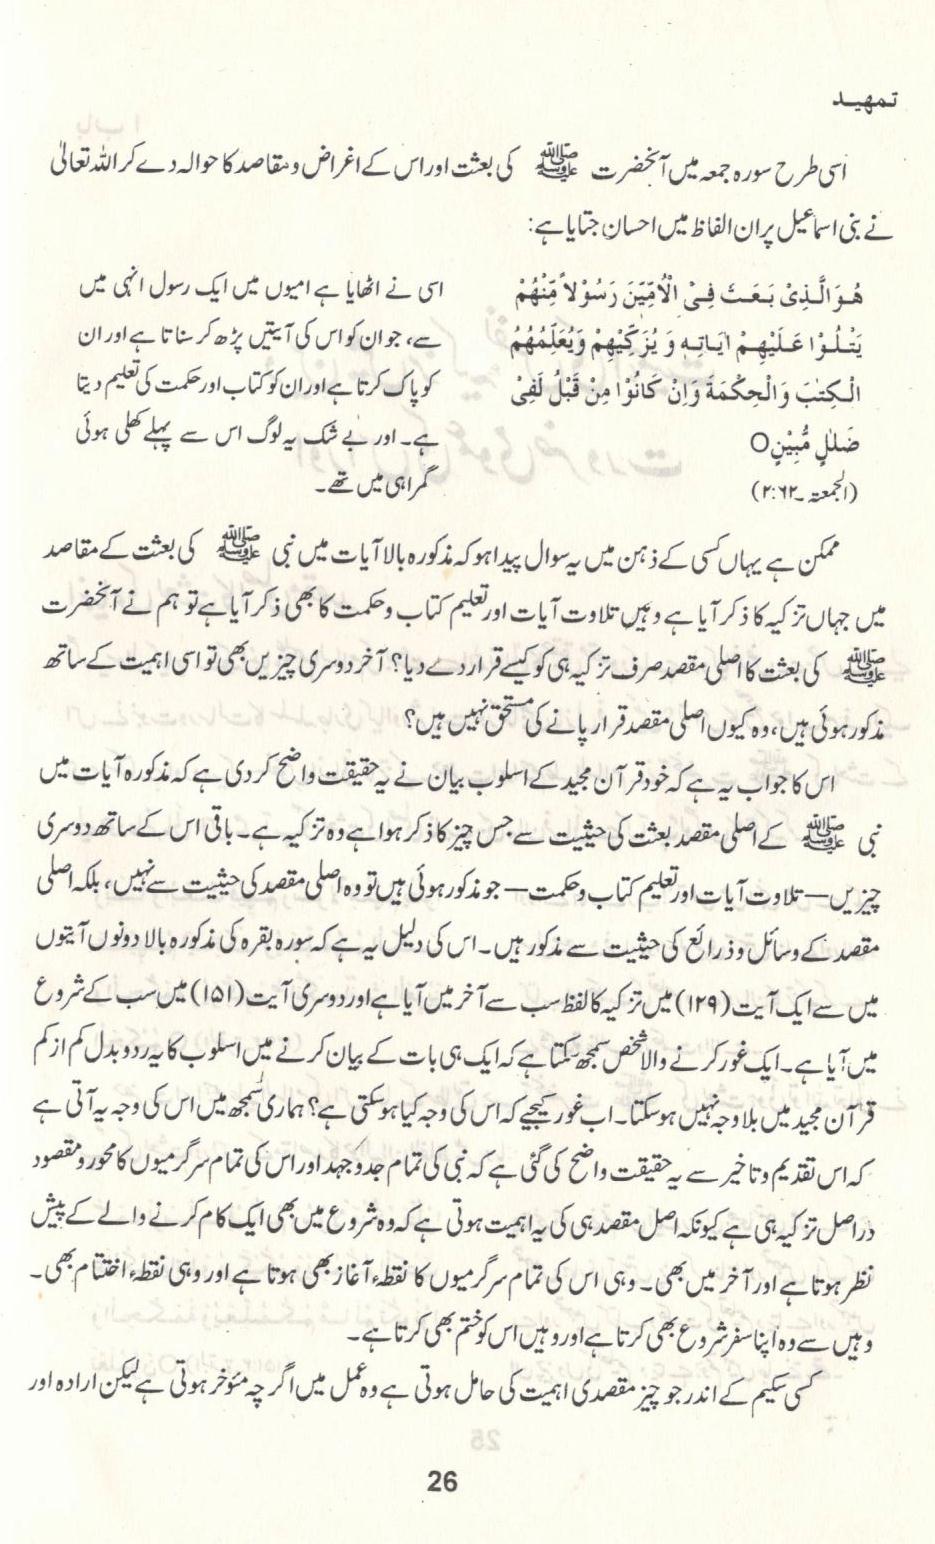 تمہید
اسی طرح سورہ جمعہ میں آنحضرت ﷺ کی بعثت اور اس کے اغراض و مقاصد کا حوالہ دے کر اللہ تعالیٰ
نے بنی اسماعیل پر ان الفاظ میں احسان جتایا ہے:
هُوَ الَّذِیْ بَعَثَ فِی الْاُمِّیّٖنَ رَسُوْلاً مِّنْهُمْ
یَتْلُوْا عَلَیْهِمْ اٰیَاتِهٖ وَ یُزَكِّیْهِمْ وَیُعَلِّمُهُمُ
الْكِتٰبَ وَالْحِكْمَةَ وَاِنْ كَانُوْا مِنْ قَبْلُ لَفِیْ
ضَلٰلٍ مُّبِیْنٍO
(الجمعتہ ۔ ۶۲:۲)
اسی نے اٹھایا ہے امیوں میں ایک رسول انہی میں
سے، جو ان کو اس کی آیتیں پڑھ کر سناتا ہے اور ان
کو پاک کرتا ہے اور ان کو کتاب اور حکمت کی تعلیم دیتا
ہے۔ اور بے شک یہ لوگ اس سے پہلے کھلی ہوئی
گمراہی میں تھے۔
ممکن ہے یہاں کسی کے ذہن میں یہ سوال پیدا ہو کہ مذکورہ بالا آیات میں نبی ﷺ کی بعثت کے مقاصد
میں جہاں تزکیہ کا ذکر آیا ہے وہیں تلاوت آیات اور تعلیم کتاب و حکمت کا بھی ذکر آیا ہے تو ہم نے آنحضرت
ﷺ کی بعثت کا اصلی مقصد صرف تزکیہ ہی کو کیسے قرار دے دیا؟ آخر دوسری چیزیں بھی تو اسی اہمیت کے ساتھ
مذکور ہوئی ہیں، وہ کیوں اصلی مقصد قرار پانے کی مستحق نہیں ہیں؟
اس کا جواب یہ ہے کہ خود قرآن مجید کے اسلوب بیان نے یہ حقیقت واضح کر دی ہے کہ مذکورہ آیات میں
نبی ﷺ کے اصلی مقصد بعثت کی حیثیت سے جس چیز کا ذکر ہوا ہے وہ تزکیہ ہے۔ باقی اس کے ساتھ دوسری
چیزیں — تلاوت آیات اور تعلیم کتاب و حکمت — جو مذکور ہوئی ہیں تو وہ اصلی مقصد کی حیثیت سے نہیں، بلکہ اصلی
مقصد کے وسائل و ذرائع کی حیثیت سے مذکور ہیں۔ اس کی دلیل یہ ہے کہ سورہ بقرہ کی مذکورہ بالا دونوں آیتوں
میں سے ایک آیت (۱۲۹) میں تزکیہ کا لفظ سب سے آخر میں آیا ہے اور دوسری آیت (۱۵۱) میں سب کے شروع
میں آیا ہے۔ ایک غور کرنے والا شخص سمجھ سکتا ہے کہ ایک ہی بات کے بیان کرنے میں اسلوب کا یہ ردوبدل کم از کم
قرآن مجید میں بلاوجہ نہیں ہو سکتا۔ اب غور کیجیے کہ اس کی وجہ کیا ہو سکتی ہے؟ ہماری سمجھ میں اس کی وجہ یہ آتی ہے
کہ اس تقدیم و تاخیر سے یہ حقیقت واضح کی گئی ہے کہ نبی کی تمام جدوجہد اور اس کی تمام سرگرمیوں کا محور و مقصود
دراصل تزکیہ ہی ہے کیونکہ اصل مقصد ہی کی یہ اہمیت ہوتی ہے کہ وہ شروع میں بھی ایک کام کرنے والے کے پیش
نظر ہوتا ہے اور آخر میں بھی۔ وہی اس کی تمام سرگرمیوں کا نقطہء آغاز بھی ہوتا ہے اور وہی نقطہء اختتام بھی۔
وہیں سے وہ اپنا سفر شروع بھی کرتا ہے اور وہیں اس کو ختم بھی کرتا ہے۔
کسی سکیم کے اندر جو چیز مقصدی اہمیت کی حامل ہوتی ہے وہ عمل میں اگرچہ مئوخر ہوتی ہے لیکن ارادہ اور
26